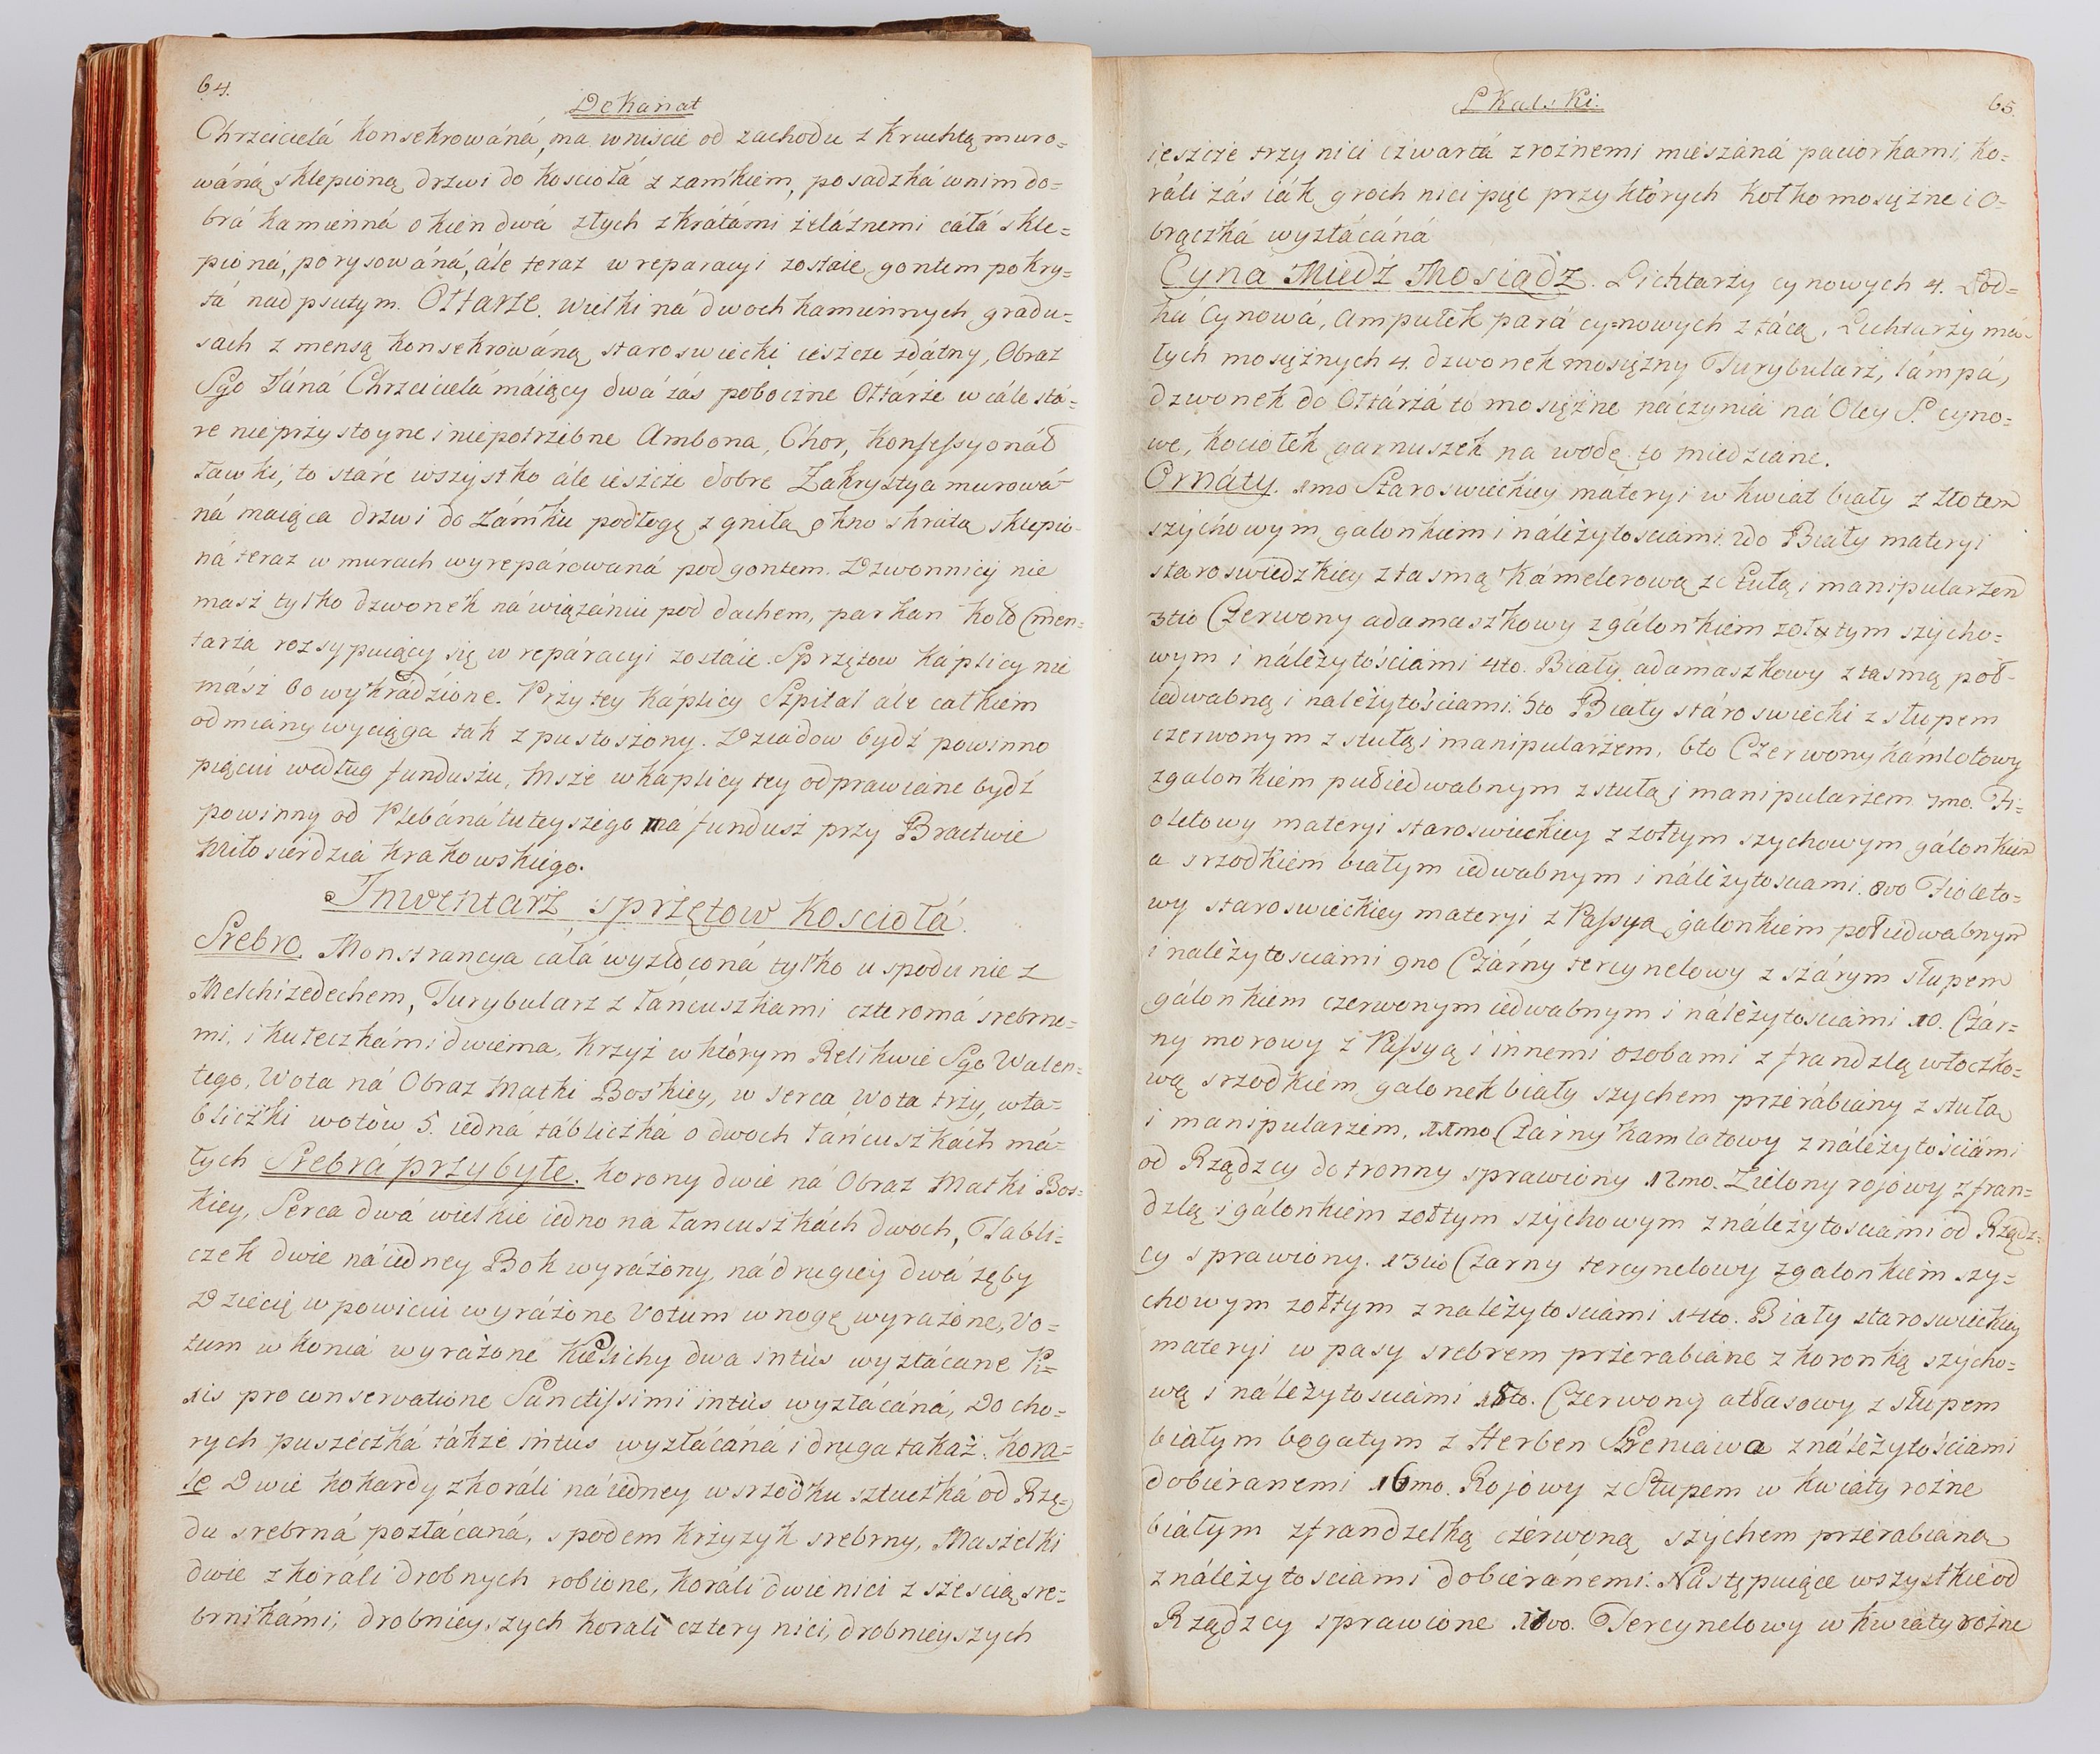 64.
Dekanat
Chrzcicielá konsekrowáná, ma wniscie od zachodu z kruchtą muro=
wáną sklepioną drzwi do kosciołá z zamkiem, posadzká wnim do=
brá kamienná okien dwá złych z krátámi żeláznemi cáłá skle=
pioná, porysowáná, ále teraz w reparacyi zostaie, gontem pokry=
tá nadpsutym. Ołtarze. wielki ná dwoch kamiennych gradu=
sach z mensą konsekrowáną staroswiecki ieszcze zdátny, Obraz
Sgo Jáná Chrzcicielá máiący dwá zás poboczne Ołtárże wcále stá=
re nieprzystoyne i niepotrzebne Ambona, Chor, Konfessyonáł
Ławki, to stáre wszystko ále ieszcze dobre Zakrystya murowá=
ná maiąca drzwi do Zámku podłogę zgniłą okno s kratą sklepio=
ná teraz w murach wyreparowaná pod gontem. Dzwonnicy nie
masz tylko dzwonek ná wiązániu pod dachem, parkan koło Cmen=
tarza rozsypuiący się w repáracyi zostáie. Sprzętow káplicy nie
mász bo wykrádzione. Przy tey káplicy Szpital ále całkiem
odmiany wyciąga ták zpustoszony. Dziadow bydź powinno
pięciu według funduszu, Msze w kaplicy tey odprawiane bydź
powinny od Plebáná tuteyszego má fundusz przy Bractwie
Miłosierdziá Krakowskiego.
Inwentarz sprzętow Kosciołá.
Srebro. Monstrancya cáłá wyzłoconá tylko u spodu nie z
Melchizedechem, Turybularz z Łáńcuszkami czteromá srebrne=
mi, i kuleczkámi dwiema, krzyż w którym Relikwie Sgo Walen=
tego, Wota ná Obraz Matki Boskiey, w serca wota trzy, w ta=
bliczki wotów 5. iedná tábliczká o dwoch łańcuszkách má=
łych Srebrá przybyłe. Korony dwie ná Obraz Matki Bos=
kiey, Serca dwá wielkie iedno ná łancuszkách dwoch, Tabli=
czek dwie ná iedney Bok wyráżony, ná drugiey dwá zęby
Dziecię w powiciu wyráżone Votum w nogę wyrażone, Vo=
tum w koniá wyrażone Kielichy dwa intùs wyzłácane Pi=
xis pro conservatione Sanctissimi intùs wyzłácáná, Do cho=
rych puszeczká tákże intus wyzłácáná i druga takaż. Kora=
le Dwie kokardy z koráli ná iedney w srzodku sztuczká od Rzę=
du srebrná pozłácaná, spodem krzyzyk srebrny, Maszelki
dwie z koráli drobnych robione, koráli dwie nici z sześcią sre=
brnikámi; drobnieyszych korali cztery nici, drobnieyszych
Skalski.
65
ieszcze trzy nici czwartá z rożnemi mieszáná paciorkami, ko=
ráli zás iák groch nici pięć przy których kołko mosiężne i o=
brączká wyzłácáná
Cyna Miedź Mosiądz. Lichtarzy cynowych 4. Łód=
ká Cynowá, Ampułek pará cynowych z tácą, Lichtarzy má=
łych mosiężnych 4. dzwonek mosiężny Turybularz, lámpa,
dzwonek do Ołtárzá to mosiężne náczynia ná Oley S. cyno=
we, kociołek garnuszek na wodę to miedziane.
Ornáty. 1mo Staroswieckiey materyi w kwiat biały z złotem
szychowym galonkiem i náleżytosciami. 2do Biały materyi
staroswiedzkiey z tasmą kámelorową ze stułą i manipularzem
3tio Czerwony adamaszkowy z gálonkiem zołtym szycho=
wym i náleżytościámi 4to. Biały adamaszkowy z tasmą poł=
iedwabną i należytościami. 5to Biały stároswiecki z słupem
czerwonym z stułą i manipularzem, 6to Czerwony kámlotowy
z galonkiem pułiedwabnym z stułą i manipularzem 7mo. Fi=
oletowy materyi staroswieckiey z zołtym szychowym gálonkiem
a srzodkiem białym iedwabnym i náleżytosciami. 8vo Fioleto=
wy staroswieckiey materyi z Passyą galonkiem połiedwabnym
i należytosciami 9no Czárny tercynelowy z szárym słupem
gálonkiem czerwonym iedwabnym i náleżytosciámi 10. Czár=
ny morowy z Passyą i innemi osobami z frandzlą włoczko=
wą srzodkiem galonek biały szychem przerábiany z stułą
i manipularzem, 11mo Czárny kamlotowy z náleżytościámi
od Rządzcy dotronny sprawiony 12mo. Zielony rojowy z fran=
dzlą i gálonkiem zołtym szychowym z náleżytosciami od Rządz=
cy sprawiony. 13tio Czarny tercynelowy z galonkiem szy=
chowym zołtym z należytosciámi 14to. Biały staroswieckiey
materyi w pasy srebrem przerabiáne z koronką szycho=
wą i náleżytosciámi 15to. Czerwony atłasowy z słupem
białym bogatym z Herbem Sreniawa z náleżytościámi
dobieranemi 16mo. Rojowy z Słupem w kwiáty rożne
białym z frandzelką czerwoną szychem przerabianą
z náleżytosciami dobieránemi. Nástępuiące wszystkie od
Rządzcy sprawione 18vo. Tercynelowy w kwiáty rożne